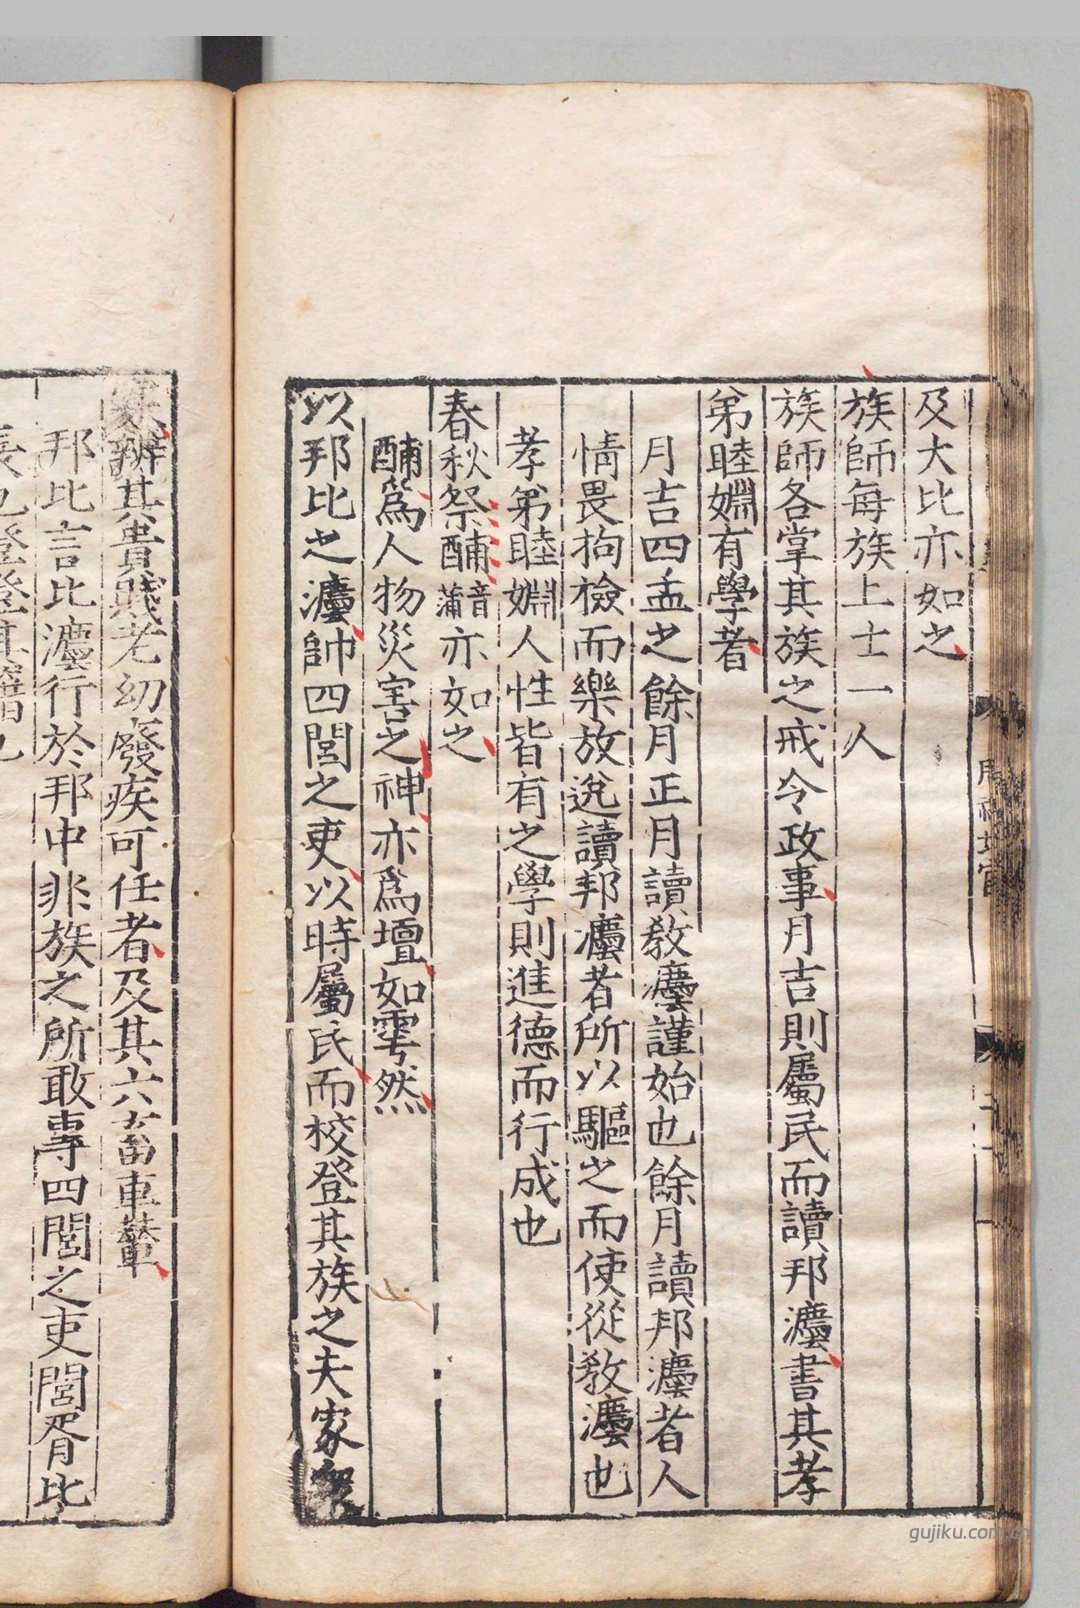 及大比亦如之
族師每族上士一人
族師各掌其族之戒令政事月吉則屬民而讀邦灋書其孝
弟睦婣有學者
月吉四孟之餘月正月讀教灋謹始也餘月讀邦灋者人
情畏拘檢而樂放逸讀邦灋者所以驅之而使從教灋也
孝弟睦婣人性皆有之學則進德而行成也
春秋祭酺音蒲亦如之
酺爲人物災害之神亦爲壇如雩然
以邦比之灋帥四閭之吏以時屬民而校登其族之夫家衆
寡辨其貴賤老幼廢疾可任者及其六畜車輦
邦比言比灋行於邦中非族之所敢專四閭之吏閭胥比
長也登登其籍也
周禮地官
gujiku.com.cn